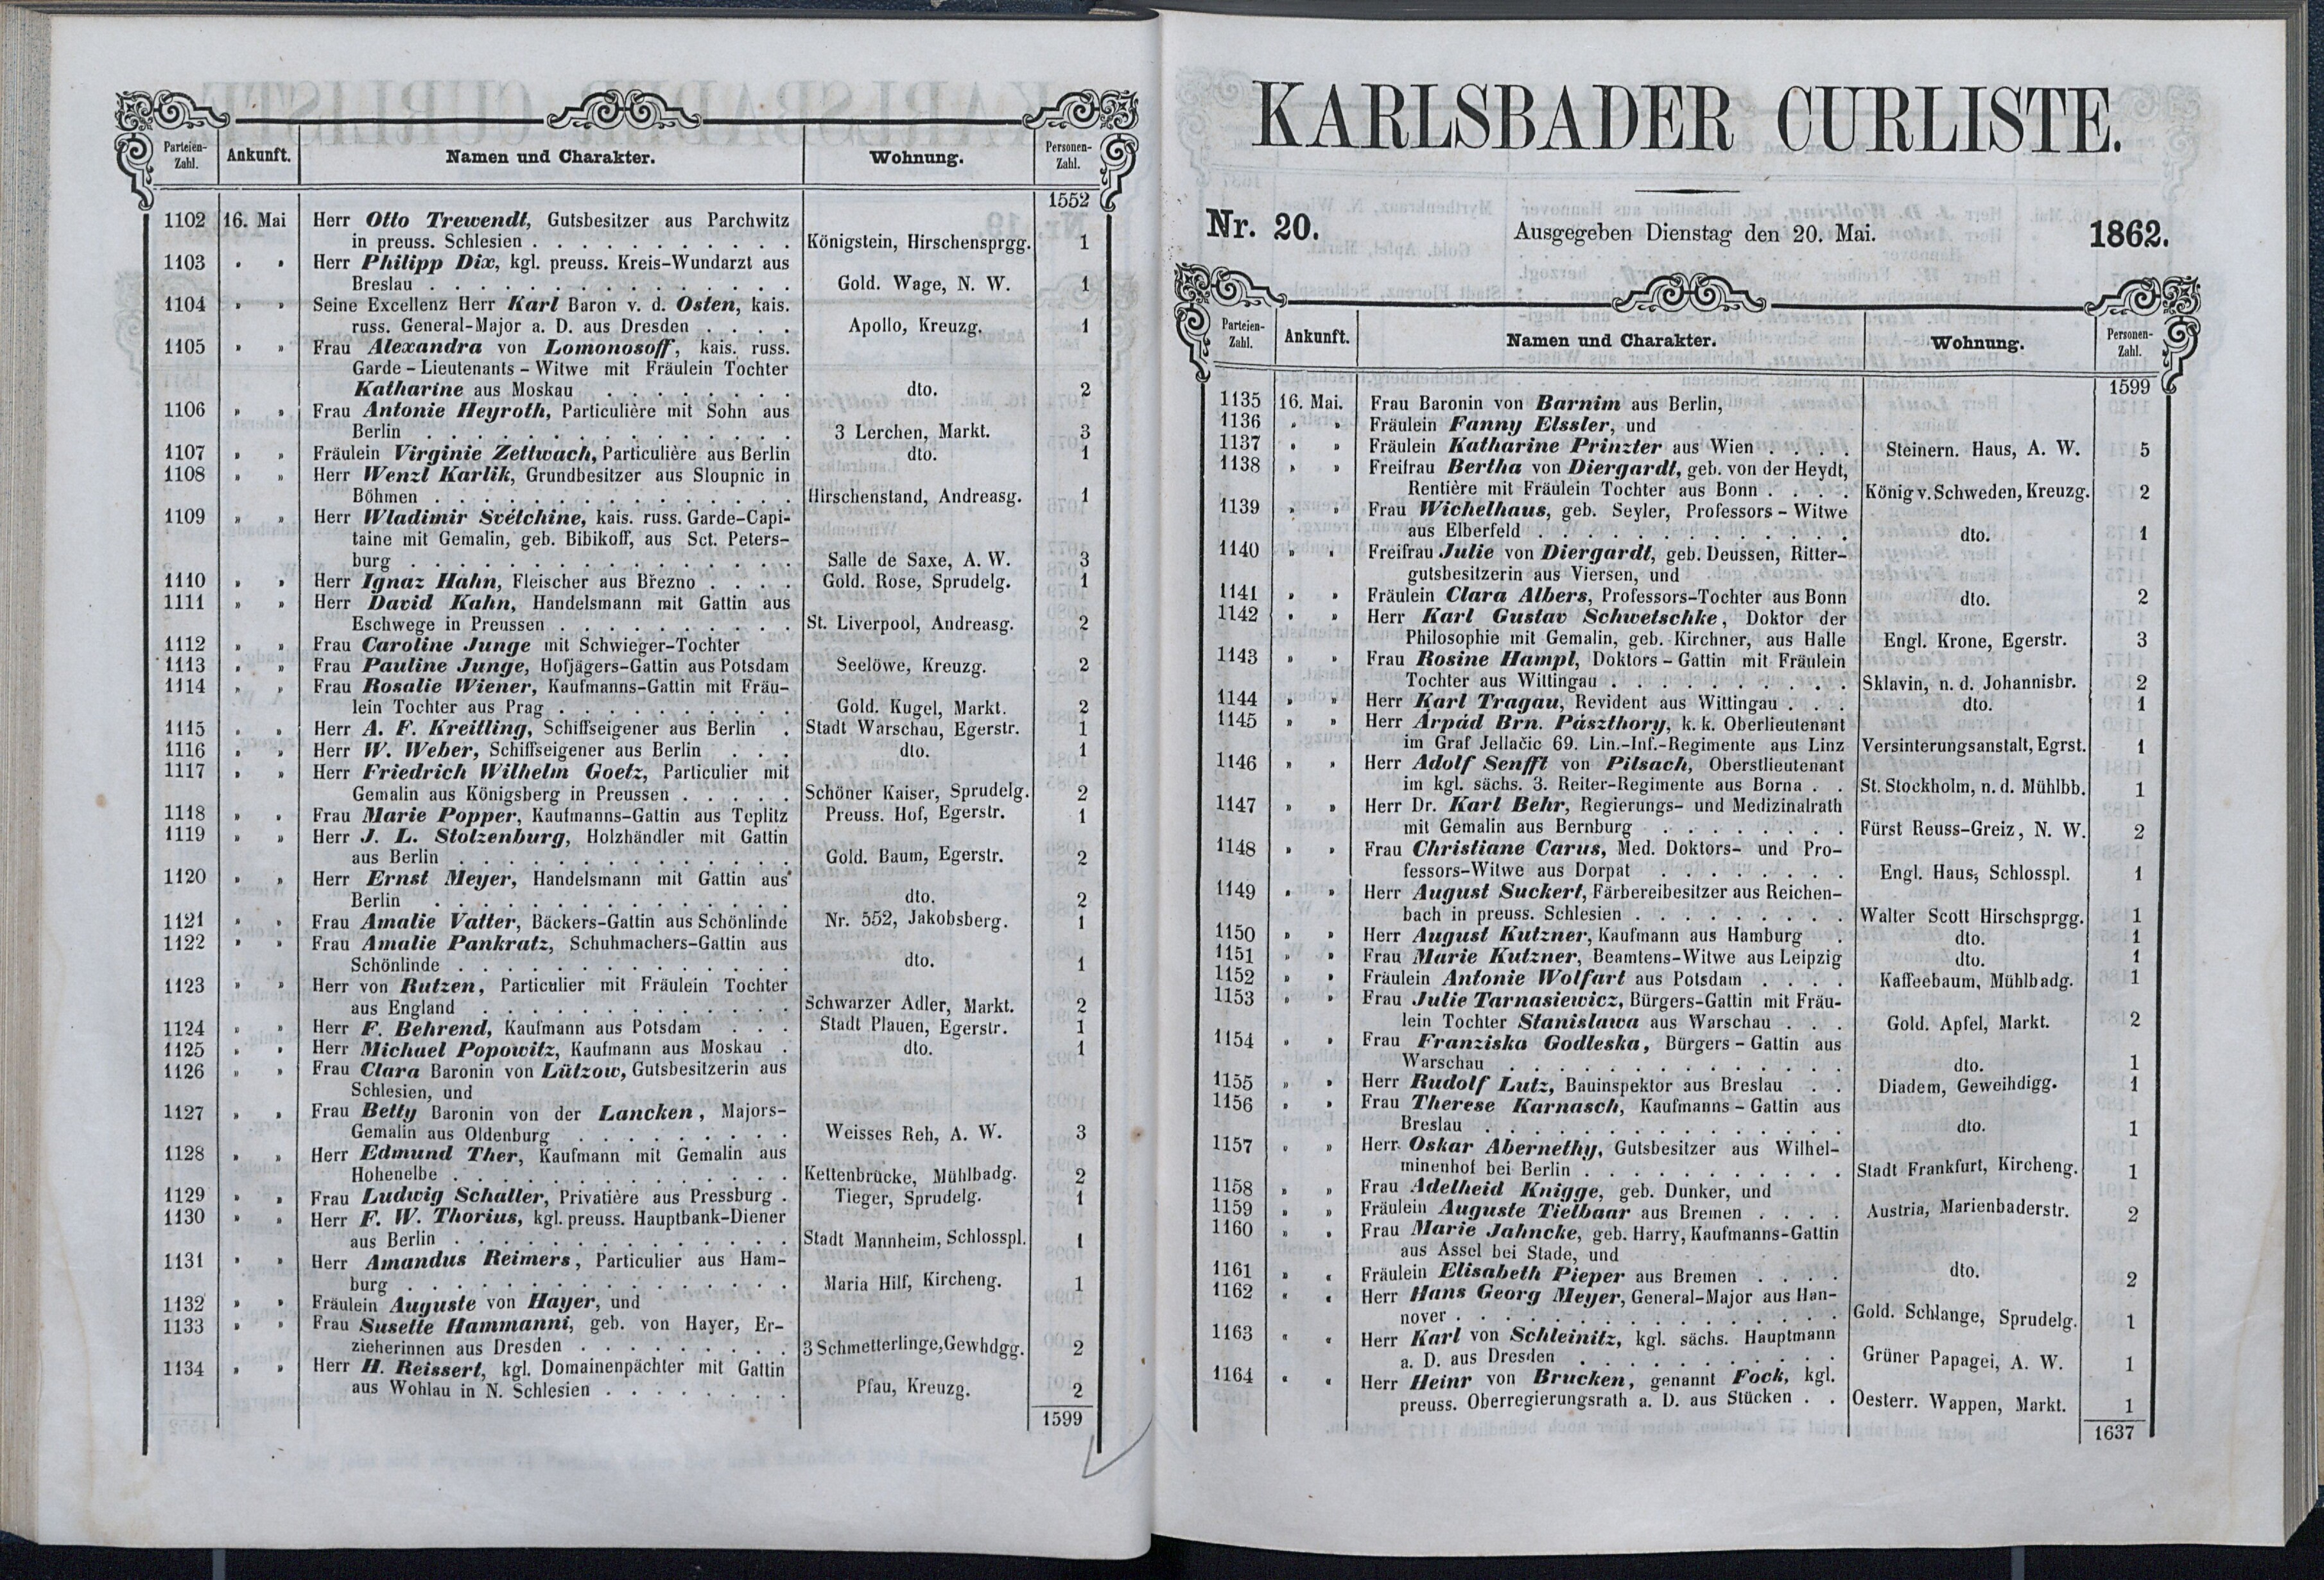 Parteien-Zahl. Ankunft. Namen und Charakter. Wohnung. Personen-Zahl.
1552
1102 16. Mai Herr Otto Trewendt, Gutsbesitzer aus Parchwitz
in preuss. Schlesien . . . Königstein, Hirschensprgg. 1
1103 » » Herr Philipp Dix, kgl. preuss. Kreis-Wundarzt aus
Breslau . . . Gold. Wage, N. W. 1
1104 » » Seine Excellenz Herr Karl Baron v. d. Osten, kais.
russ. General-Major a. D. aus Dresden . . . Apollo, Kreuzg. 1
1105 » » Frau Alexandra von Lomonosoff, kais. russ.
Garde-Lieutenants-Witwe mit Fräulein Tochter
Katharine aus Moskau . . . dto. 2
1106 » » Frau Antonie Heyroth, Particulière mit Sohn aus
Berlin . . . 3 Lerchen, Markt. 3
1107 » » Fräulein Virginie Zettwach, Particulière aus Berlin dto. 1
1108 » » Herr Wenzl Karlik, Grundbesitzer aus Sloupnic in
Böhmen . . . Hirschenstand, Andreasg. 1
1109 » » Herr Wladimir Svétchine, kais. russ. Garde-Capi-
taine mit Gemalin, geb. Bibikoff, aus Sct. Peters-
burg . . . Salle de Saxe, A. W. 3
1110 » » Herr Ignaz Hahn, Fleischer aus Březno . . . Gold. Rose, Sprudelg. 1
1111 » » Herr David Kahn, Handelsmann mit Gattin aus
Eschwege in Preussen . . . St. Liverpool, Andreasg. 2
1112 » » Frau Caroline Junge mit Schwieger-Tochter
1113 » » Frau Pauline Junge, Hofjägers-Gattin aus Potsdam Seelöwe, Kreuzg. 2
1114 » » Frau Rosalie Wiener, Kaufmanns-Gattin mit Fräu-
lein Tochter aus Prag . . . Gold. Kugel, Markt. 2
1115 » » Herr A. F. Kreitling, Schiffseigener aus Berlin . Stadt Warschau, Egerstr. 1
1116 » » Herr W. Weber, Schiffseigener aus Berlin . . . dto. 1
1117 » » Herr Friedrich Wilhelm Goetz, Particulier mit
Gemalin aus Königsberg in Preussen . . . Schöner Kaiser, Sprudelg. 2
1118 » » Frau Marie Popper, Kaufmanns-Gattin aus Teplitz Preuss. Hof, Egerstr. 1
1119 » » Herr J. L. Stolzenburg, Holzhändler mit Gattin
aus Berlin . . . Gold. Baum, Egerstr. 2
1120 » » Herr Ernst Meyer, Handelsmann mit Gattin aus
Berlin . . . dto. 2
1121 » » Frau Amalie Vatter, Bäckers-Gattin aus Schönlinde Nr. 552, Jakobsberg. 1
1122 » » Frau Amalie Pankratz, Schuhmachers-Gattin aus
Schönlinde . . . dto. 1
1123 » » Herr von Rutzen, Particulier mit Fräulein Tochter
aus England . . . Schwarzer Adler, Markt. 2
1124 » » Herr F. Behrend, Kaufmann aus Potsdam . . . Stadt Plauen, Egerstr. 1
1125 » » Herr Michael Popowitz, Kaufmann aus Moskau . dto. 1
1126 » » Frau Clara Baronin von Lützow, Gutsbesitzerin aus
Schlesien, und
1127 » » Frau Betty Baronin von der Lancken, Majors-
Gemalin aus Oldenburg . . . Weisses Reh, A. W. 3
1128 » » Herr Edmund Ther, Kaufmann mit Gemalin aus
Hohenelbe . . . Kettenbrücke, Mühlbadg. 2
1129 » » Frau Ludwig Schaller, Privatière aus Pressburg . Tieger, Sprudelg. 1
1130 » » Herr F. W. Thorius, kgl. preuss. Hauptbank-Diener
aus Berlin . . . Stadt Mannheim, Schlosspl. 1
1131 » » Herr Amandus Reimers, Particulier aus Ham-
burg . . . Maria Hilf, Kircheng. 1
1132 » » Fräulein Auguste von Hayer, und
1133 » » Frau Susette Hammanni, geb. von Hayer, Er-
zieherinnen aus Dresden . . . 3 Schmetterlinge, Gewhdgg. 2
1134 » » Herr H. Reissert, kgl. Domainenpächter mit Gattin
aus Wohlau in N. Schlesien . . . Pfau, Kreuzg. 2
1599
KARLSBADER CURLISTE.
Nr. 20. Ausgegeben Dienstag den 20. Mai. 1862.
Parteien-Zahl. Ankunft. Namen und Charakter. Wohnung. Personen-Zahl.
1599
1135 16. Mai. Frau Baronin von Barnim aus Berlin,
1136 » » Fräulein Fanny Elssler, und
1137 » » Fräulein Katharine Prinzter aus Wien . . . . Steinern. Haus, A. W. 5
1138 » » Freifrau Bertha von Diergardt, geb. von der Heydt,
Rentière mit Fräulein Tochter aus Bonn . . . . König v. Schweden, Kreuzg. 2
1139 » » Frau Wichelhaus, geb. Seyler, Professors-Witwe
aus Elberfeld . . . dto. 1
1140 » » Freifrau Julie von Diergardt, geb. Deussen, Ritter-
gutsbesitzerin aus Viersen, und
1141 » » Fräulein Clara Albers, Professors-Tochter aus Bonn dto. 2
1142 » » Herr Karl Gustav Schwetschke, Doktor der
Philosophie mit Gemalin, geb. Kirchner, aus Halle Engl. Krone, Egerstr. 3
1143 » » Frau Rosine Hampl, Doktors-Gattin mit Fräulein
Tochter aus Wittingau . . . Sklavin, n. d. Johannisbr. 2
1144 » » Herr Karl Tragau, Revident aus Wittingau . . . dto. 1
1145 » » Herr Arpád Brn. Pászthory, k. k. Oberlieutenant
im Graf Jellačic 69. Lin.-Inf.-Regimente aus Linz Versinterungsanstalt, Egrst. 1
1146 » » Herr Adolf Senfft von Pilsach, Oberstlieutenant
im kgl. sächs. 3. Reiter-Regimente aus Borna . . St. Stockholm, n. d. Mühlbb. 1
1147 » » Herr Dr. Karl Behr, Regierungs- und Medizinalrath
mit Gemalin aus Bernburg . . . Fürst Reuss-Greiz, N. W. 2
1148 » » Frau Christiane Carus, Med. Doktors- und Pro-
fessors-Witwe aus Dorpat . . . Engl. Haus, Schlosspl. 1
1149 » » Herr August Suckert, Färbereibesitzer aus Reichen-
bach in preuss. Schlesien . . . Walter Scott Hirschsprgg. 1
1150 » » Herr August Kutzner, Kaufmann aus Hamburg . dto. 1
1151 » » Frau Marie Kutzner, Beamtens-Witwe aus Leipzig dto. 1
1152 » » Fräulein Antonie Wolfart aus Potsdam . . . . Kaffeebaum, Mühlbadg. 1
1153 » » Frau Julie Tarnasiewicz, Bürgers-Gattin mit Fräu-
lein Tochter Stanislawa aus Warschau . . . Gold. Apfel, Markt. 2
1154 » » Frau Franziska Godleska, Bürgers-Gattin aus
Warschau . . . dto. 1
1155 » » Herr Rudolf Lutz, Bauinspektor aus Breslau . . Diadem, Geweihdigg. 1
1156 » » Frau Therese Karnasch, Kaufmanns-Gattin aus
Breslau . . . dto. 1
1157 » » Herr Oskar Abernethy, Gutsbesitzer aus Wilhel-
minenhof bei Berlin . . . Stadt Frankfurt, Kircheng. 1
1158 » » Frau Adelheid Knigge, geb. Dunker, und
1159 » » Fräulein Auguste Tielbaar aus Bremen . . . . Austria, Marienbaderstr. 2
1160 » » Frau Marie Jahncke, geb. Harry, Kaufmanns-Gattin
aus Assel bei Stade, und
1161 » « Fräulein Elisabeth Pieper aus Bremen . . . . dto. 2
1162 « « Herr Hans Georg Meyer, General-Major aus Han-
nover . . . Gold. Schlange, Sprudelg. 1
1163 « « Herr Karl von Schleinitz, kgl. sächs. Hauptmann
a. D. aus Dresden . . . Grüner Papagei, A. W. 1
1164 « « Herr Heinr von Brucken, genannt Fock, kgl.
preuss. Oberregierungsrath a. D. aus Stücken . . Oesterr. Wappen, Markt. 1
1637